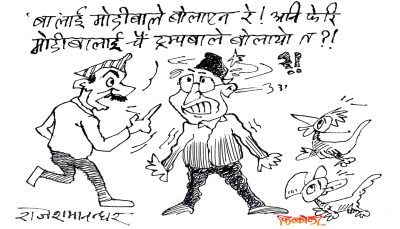 'बालाई मोदीबाले बोलाएन रे! अनि फेरि
मोदीबालाई चैं ट्रम्पबाले बोलायो त ?!
?!
राजेशमानन्धर
फित्कौली